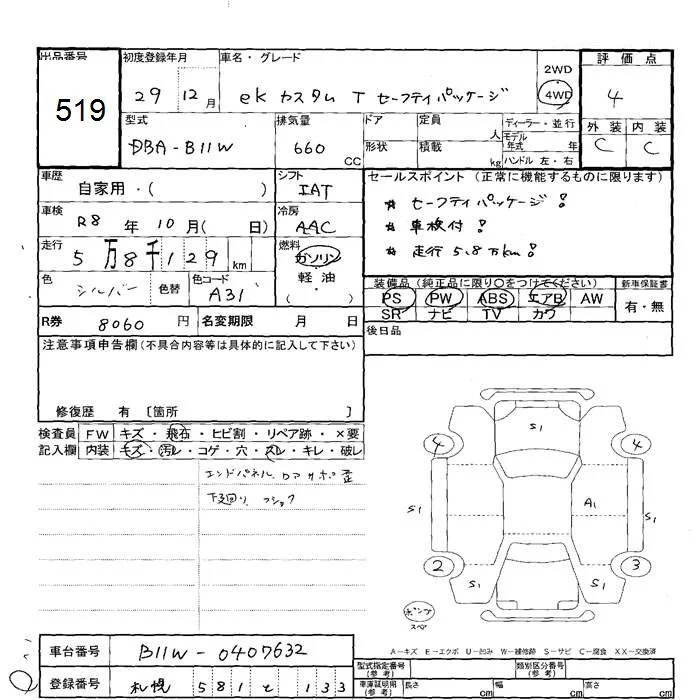 出品番号 初度登録年月 車名・グレード 評価点
519 29 12月 ek カスタム T セーフティパッケージ 2WD 4WD 4
型式 排気量 ドア 定員 人 ディーラー・並行 外装 内装
DBA-B11W 660 CC 形状 積載 kg モデル年式 年 ハンドル 左・右 C C
車歴 シフト セールスポイント (正常に機能するものに限ります)
自家用・( ) IAT セーフティパッケージ!
車検 冷房 車検付!
R8 年 10 月( 日) AAC 走行 5.8万km!
走行 燃料
5万8千129 km ガソリン
色 シルバー 色替 色コード A31 軽油 ( )
装備品 (純正品に限り○をつけてください) 新車保証書
PS PW ABS エアB AW 有・無
SR ナビ TV カワ
R券 8060 円 名変期限 月 日 後日品
注意事項申告欄 (不具合内容等は具体的に記入して下さい)
修復歴 有 〔箇所 〕
検査員 FW キズ・飛石・ヒビ割・リペア跡・×要
記入欄 内装 キズ・汚レ・コゲ・穴・スレ・キレ・破レ
エンドパネル、
下廻り
S1
4 4
S1 A1 S1
2 S1 S1 3
スペア
A-キズ E-エクボ U-凹み W-補修跡 S-サビ C-腐食 XX-交換済
車台番号 B11W-0407632 型式指定番号 (参考) 類別区分番号 (参考)
登録番号 札幌 581 133 車庫証明用 (参考) 長さ cm 幅 cm 高さ cm